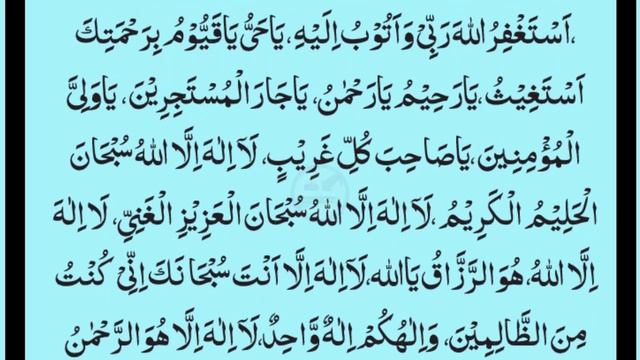 ،اَسْتَغْفِرُ اللهَ رَبِّیْ وَاَتُوْبُ اِلَیْهِ، یَاحَیُّ یَاقَیُّوْمُ بِرَحْمَتِكَ
اَسْتَغِیْثُ، یَارَحِیْمُ یَارَحْمٰنُ، یَاجَارَ الْمُسْتَجِرِیْنَ، یَاوَلِیَّ
الْمُؤْمِنِیْنَ، یَاصَاحِبَ كُلِّ غَرِیْبٍ، لَآ اِلٰهَ اِلَّا اللهُ سُبْحَانَ
الْحَلِیْمُ الْكَرِیْمُ، لَآ اِلٰهَ اِلَّا اللهُ سُبْحَانَ الْعَزِیْزِ الْغَنِیِّ، لَا اِلٰهَ
اِلَّا اللهُ، هُوَ الرَّزَّاقُ یَاالله، لَآ اِلٰهَ اِلَّا اَنْتَ سُبْحَانَكَ اِنِّیْ كُنْتُ
مِنَ الظَّالِمِیْنَ، وَاِلٰهُكُمْ اِلٰهٌ وَّاحِدٌ، لَآ اِلٰهَ اِلَّا هُوَ الرَّحْمٰنُ